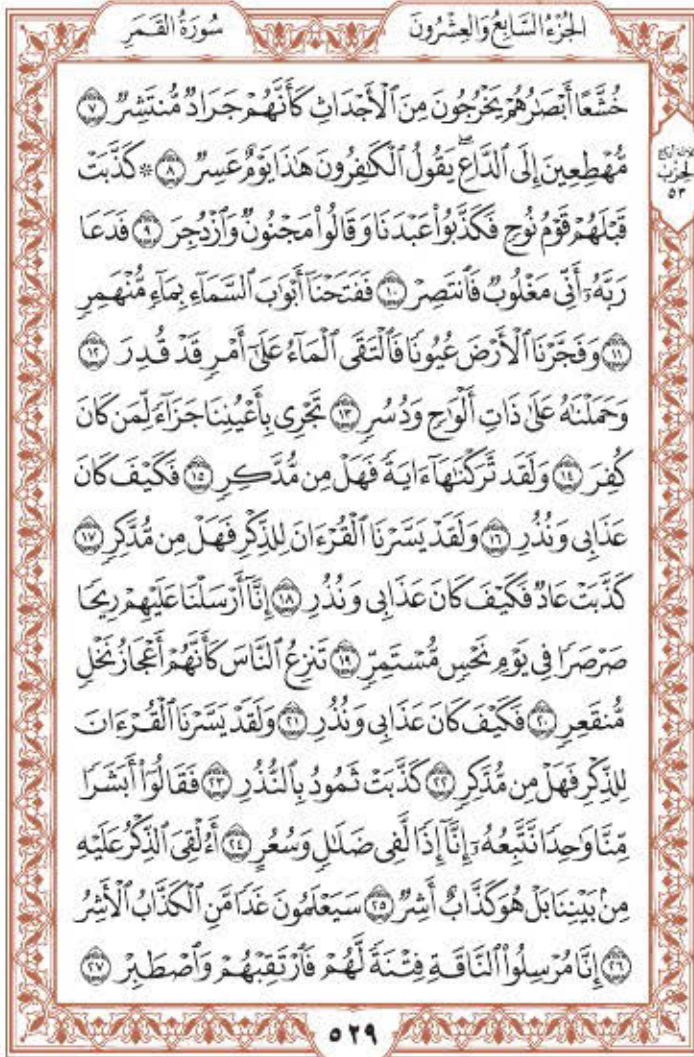 الجُزْءُ السَّابِعُ وَالعِشْرُونَ
سُورَةُ القَمَرِ
خُشَّعًا أَبْصَٰرُهُمْ يَخْرُجُونَ مِنَ ٱلْأَجْدَاثِ كَأَنَّهُمْ جَرَادٌ مُّنتَشِرٌ ٧
مُّهْطِعِينَ إِلَى ٱلدَّاعِ ۖ يَقُولُ ٱلْكَٰفِرُونَ هَٰذَا يَوْمٌ عَسِرٌ ٨ ۞ كَذَّبَتْ
قَبْلَهُمْ قَوْمُ نُوحٍ فَكَذَّبُوا۟ عَبْدَنَا وَقَالُوا۟ مَجْنُونٌ وَٱزْدُجِرَ ٩ فَدَعَا
رَبَّهُۥٓ أَنِّى مَغْلُوبٌ فَٱنتَصِرْ ١٠ فَفَتَحْنَآ أَبْوَٰبَ ٱلسَّمَآءِ بِمَآءٍ مُّنْهَمِرٍ
١١ وَفَجَّرْنَا ٱلْأَرْضَ عُيُونًا فَٱلْتَقَى ٱلْمَآءُ عَلَىٰٓ أَمْرٍ قَدْ قُدِرَ ١٢
وَحَمَلْنَٰهُ عَلَىٰ ذَاتِ أَلْوَٰحٍ وَدُسُرٍ ١٣ تَجْرِى بِأَعْيُنِنَا جَزَآءً لِّمَن كَانَ
كُفِرَ ١٤ وَلَقَد تَّرَكْنَٰهَآ ءَايَةً فَهَلْ مِن مُّدَّكِرٍ ١٥ فَكَيْفَ كَانَ
عَذَابِى وَنُذُرِ ١٦ وَلَقَدْ يَسَّرْنَا ٱلْقُرْءَانَ لِلذِّكْرِ فَهَلْ مِن مُّدَّكِرٍ ١٧
كَذَّبَتْ عَادٌ فَكَيْفَ كَانَ عَذَابِى وَنُذُرِ ١٨ إِنَّآ أَرْسَلْنَا عَلَيْهِمْ رِيحًا
صَرْصَرًا فِى يَوْمِ نَحْسٍ مُّسْتَمِرٍّ ١٩ تَنزِعُ ٱلنَّاسَ كَأَنَّهُمْ أَعْجَازُ نَخْلٍ
مُّنقَعِرٍ ٢٠ فَكَيْفَ كَانَ عَذَابِى وَنُذُرِ ٢١ وَلَقَدْ يَسَّرْنَا ٱلْقُرْءَانَ
لِلذِّكْرِ فَهَلْ مِن مُّدَّكِرٍ ٢٢ كَذَّبَتْ ثَمُودُ بِٱلنُّذُرِ ٢٣ فَقَالُوٓا۟ أَبَشَرًا
مِّنَّا وَٰحِدًا نَّتَّبِعُهُۥٓ إِنَّآ إِذًا لَّفِى ضَلَٰلٍ وَسُعُرٍ ٢٤ أَءُلْقِىَ ٱلذِّكْرُ عَلَيْهِ
مِنۢ بَيْنِنَا بَلْ هُوَ كَذَّابٌ أَشِرٌ ٢٥ سَيَعْلَمُونَ غَدًا مَّنِ ٱلْكَذَّابُ ٱلْأَشِرُ
٢٦ إِنَّا مُرْسِلُوا۟ ٱلنَّاقَةِ فِتْنَةً لَّهُمْ فَٱرْتَقِبْهُمْ وَٱصْطَبِرْ ٢٧
الحِزْبُ
٥٣
٥٢٩